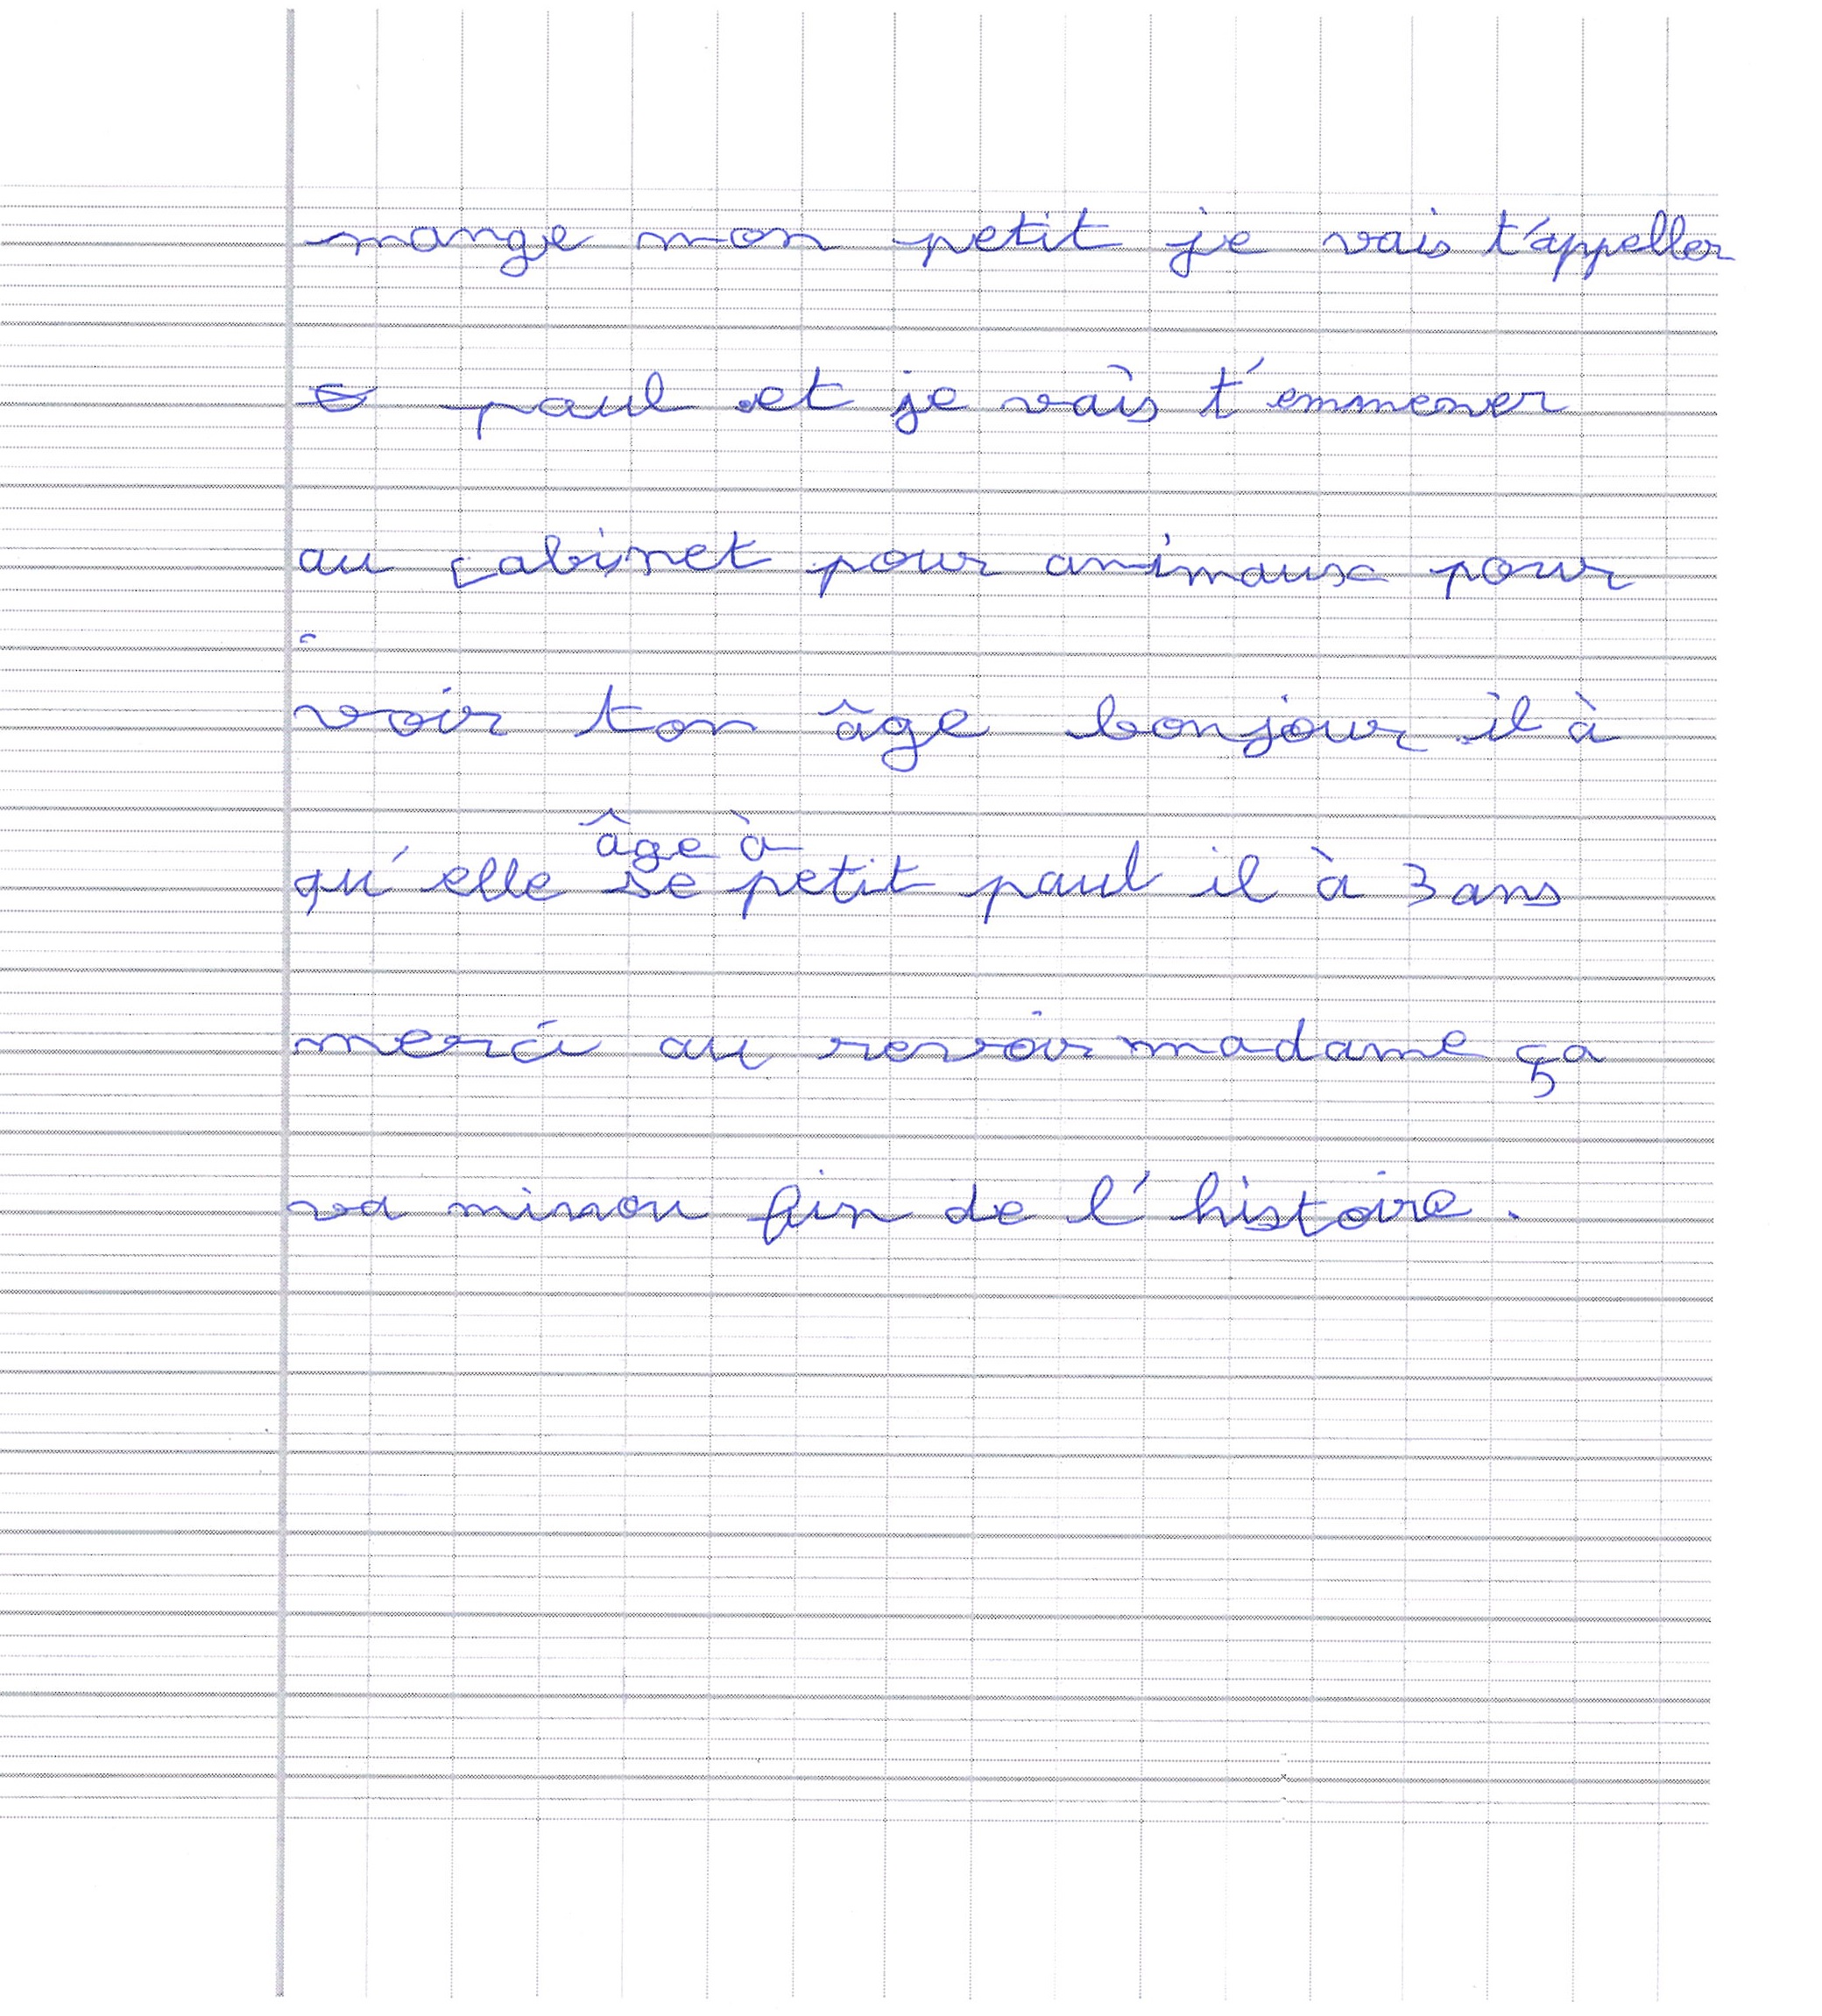 mange mon petit je vais t'appeller
paul et je vais t'emmener
au cabinet pour animaux pour
voir ton âge bonjour il à
âge à
qu'elle se petit paul il à 3 ans
merci au revoir madame ça
va minou fin de l'histoire.